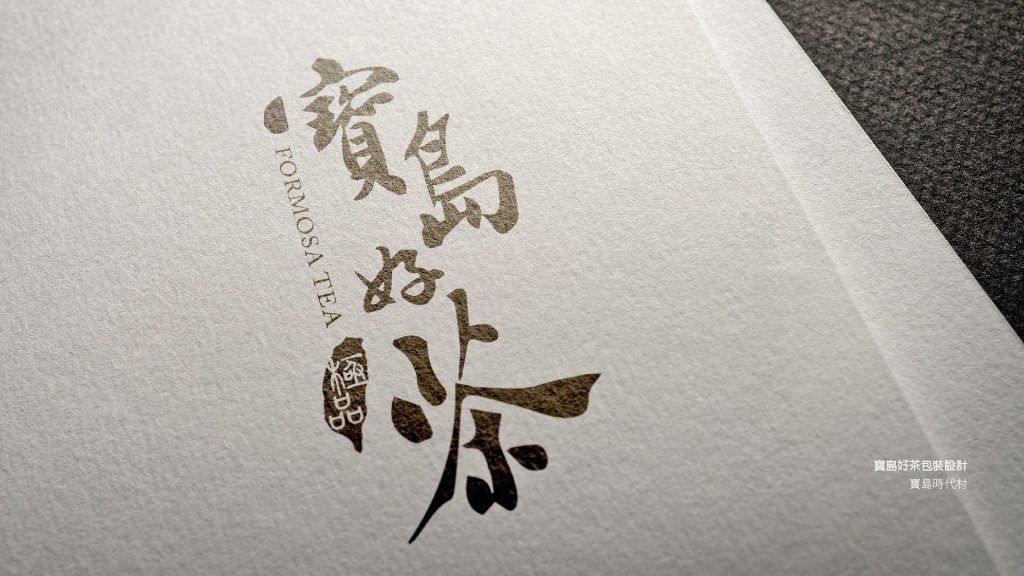 寶島好茶
FORMOSA TEA
極品
寶島好茶包裝設計
寶島時代村